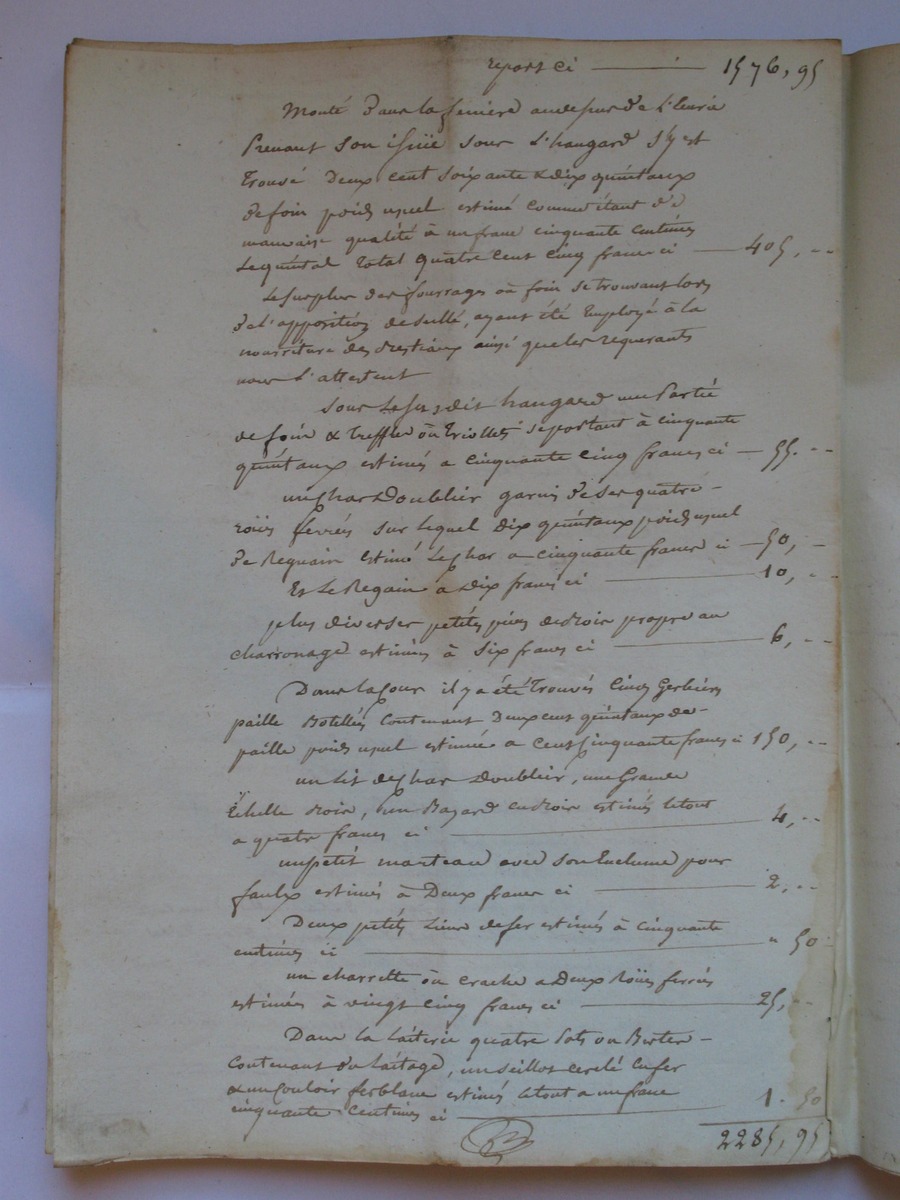 report ci ——— 1576, 95
Monté dans la feniere audessus de l'Ecurie
Prenant son issüe sous l'hangard s'y est
trouvé Deux cent soixante & dix quintaux
de foin poids usuel estimé comme étant de
mauvaise qualité à un franc cinquante centimes
le quintal total quatre cent cinq francs ci —— 405, --
Le surplus des fourrages où foin se trouvant lors
de l'apposition de scellé, ayant été Employé à la
nourriture des Bestiaux ainsi que les requerants
nous l'attestent
Sous le susdit hangard une Partie
de foin & treffle où triollet se portant à cinquante
quintaux estimés a cinquante cinq francs ci — 55. --
un char Doublier garnis de ses quatre
roües ferrées sur lequel dix quintaux poids usuel
de Regain estimé le char a cinquante francs ci — 50, -
Et le Regain a dix francs ci ——— 10, --
plus diverses petites pieces de Boix propre au
charronage estimées à six francs ci ——— 6, --
Dans la Cour il y a été trouvés Cinq Gerbiers
paille Botellées Contenant Deux cent quintaux de
paille poids usuel estimée a cent cinquante francs ci 150, --
un Lit de char Doublier, une Grande
Echelle Boix, un Bayard en Boix estimés le tout
a quatre francs ci ——— 4, --
un petit marteau avec son Enclume pour
faulx estimés à Deux francs ci ——— 2, --
Deux petits Liens de fer estimés à cinquante
centimes ci ——— " 50
un charrette où crache a Deux Roües ferrées
estimés à vingt cinq francs ci ——— 25, --
Dans la Laiterie quatre Pots ou
Contenant du Laitage, un seillot cerclé en fer
& un Couloir ferblanc estimés le tout a un franc
cinquante Centimes ci ——— 1. 50
2285, 95